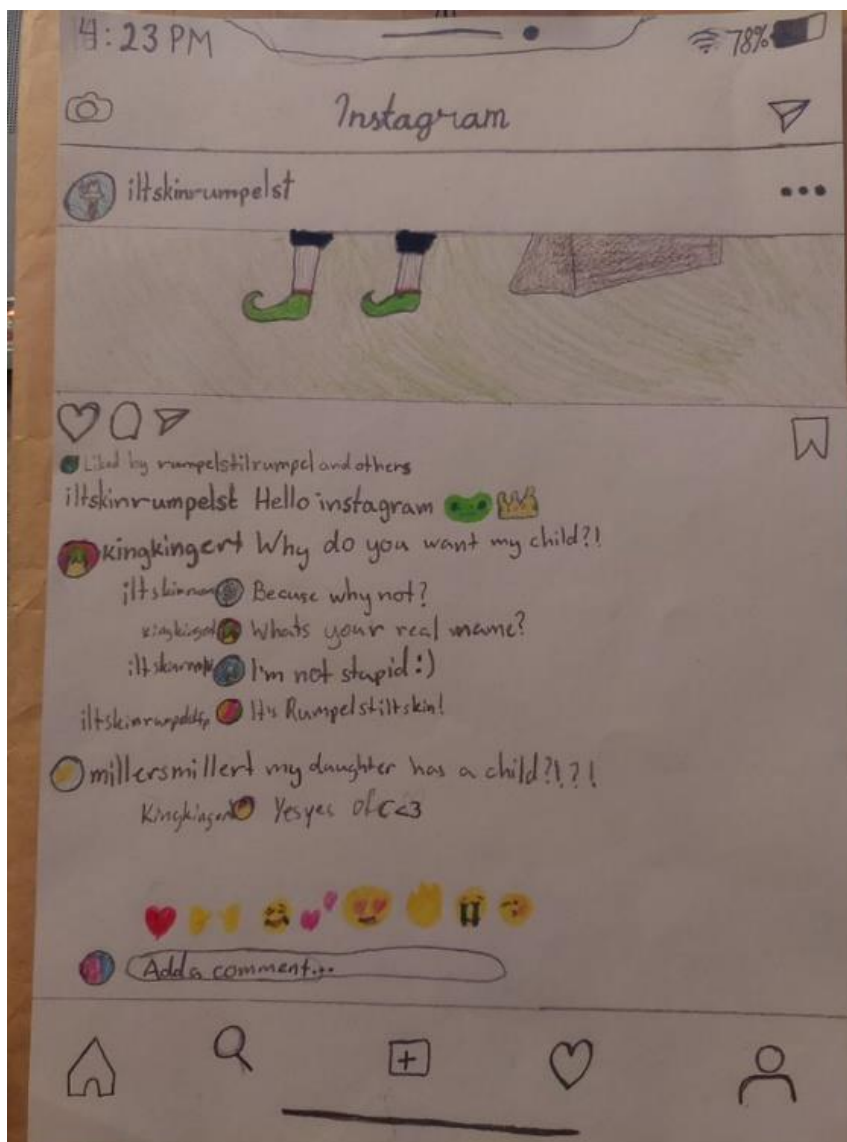 4:23 PM 78%
Instagram
iltskinrumpelst
Liked by rumpelstilrumpel and others
iltskinrumpelst Hello instagram
kingkingert Why do you want my child?!
Becuse why not?
Whats your real mame?
I'm not stupid:)
It's Rumpelstiltskin!
millersmillert my daughter has a child?!?!
Yesyes ofc<3
Add a comment...